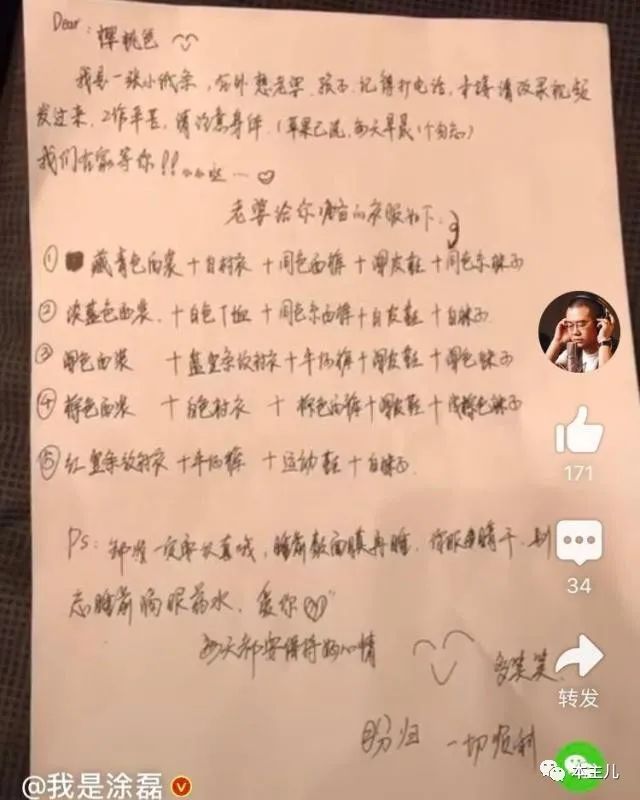 Dear:
我是一张小纸条，在外想老婆、孩子、记得打电话，
发过来，工作辛苦，请注意身体，(苹果已洗，每天早晨1个勿忘)
我们在家等你!!
老婆给你搭的衣服如下:
① 藏青色西装+白衬衣+同色西裤+黑皮鞋+同色系袜子
② 淡蓝色西装+白色T恤+同色系西裤+白皮鞋+白袜子
③ 黑色西装+蓝竖条纹衬衣+牛仔裤+黑皮鞋+黑色袜子
④ 棕色西装+白色衬衣+棕色西裤+黑皮鞋+浅棕色袜子
⑤ 红竖条纹衬衣+牛仔裤+运动鞋+白袜子
Ps: 睡前敷面膜再睡，别
忘睡前滴眼药水，爱你
每天都要保持好心情
多笑笑
盼归 一切顺利
171
34
转发
@我是涂磊
本主儿